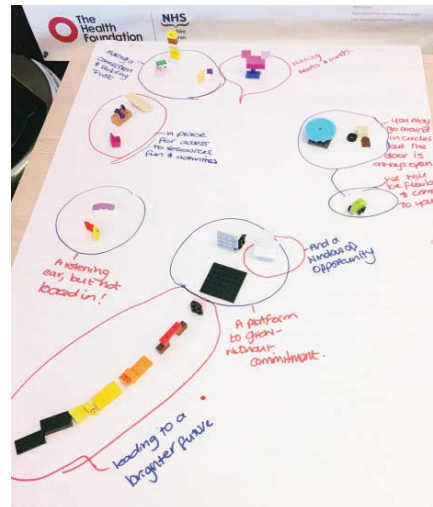 The
Health
Foundation
NHS
Making a
connection
& building
trust
Winning
hearts & minds.
A place
for access
to resources,
fun & activities
you may
go around
in circles
but the
door is
always open
We will
be flexible
& come
to you
A listening
ear, but not
locked in!
And a
window of
opportunity
A platform
to grow -
without
commitment.
leading to a
brighter future